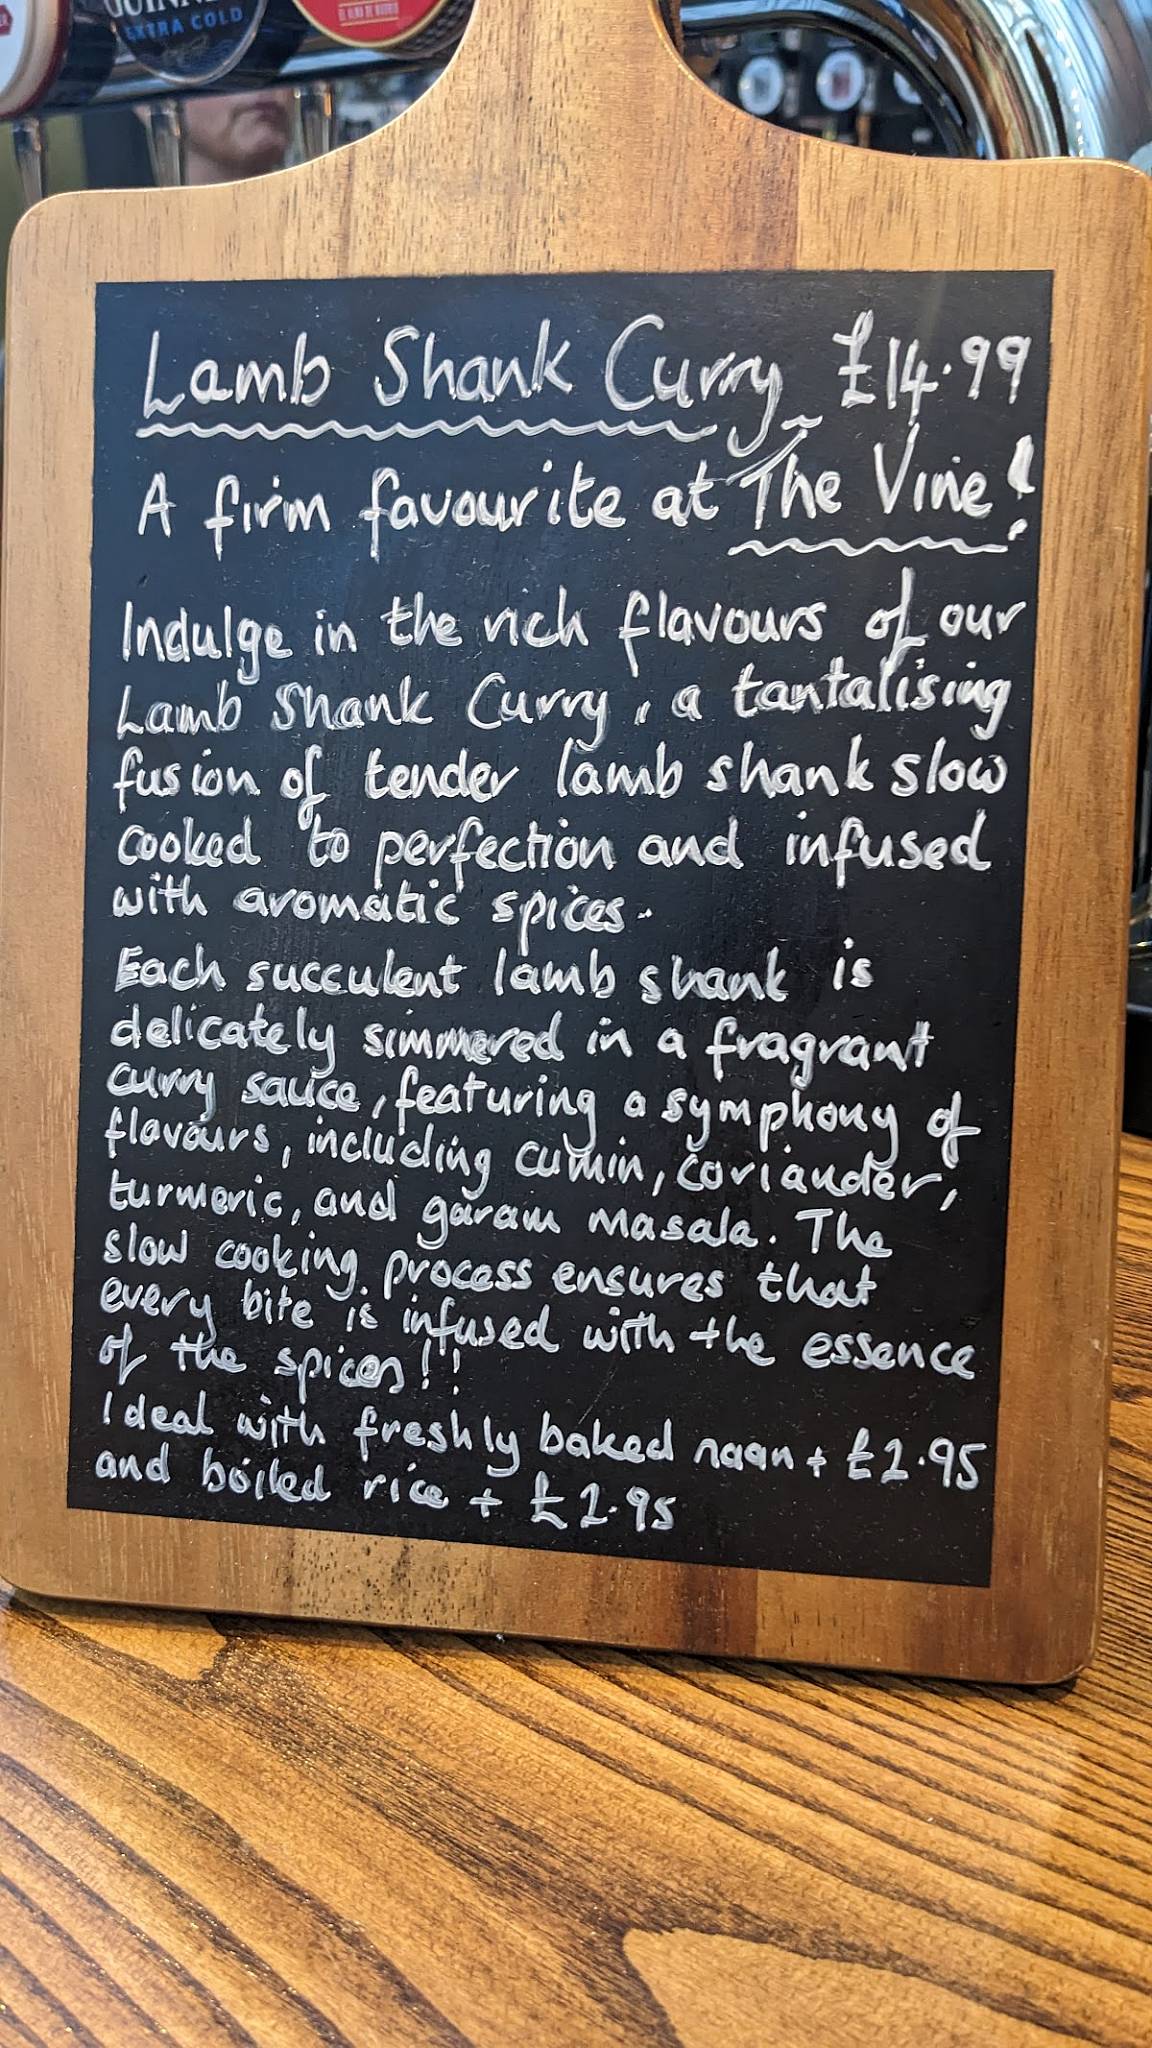 GUINNE
EXTRA COLD
Lamb Shank Curry £14.99
A firm favourite at The Vine!
Indulge in the rich flavours of our
Lamb Shank Curry, a tantalising
fusion of tender lamb shank slow
cooked to perfection and infused
with aromatic spices.
Each succulent lamb shank is
delicately simmered in a fragrant
curry sauce, featuring a symphony of
flavours, including cumin, coriander,
turmeric, and garam masala. The
slow cooking process ensures that
every bite is infused with the essence
of the spices!!
Ideal with freshly baked naan + £2.95
and boiled rice + £2.95